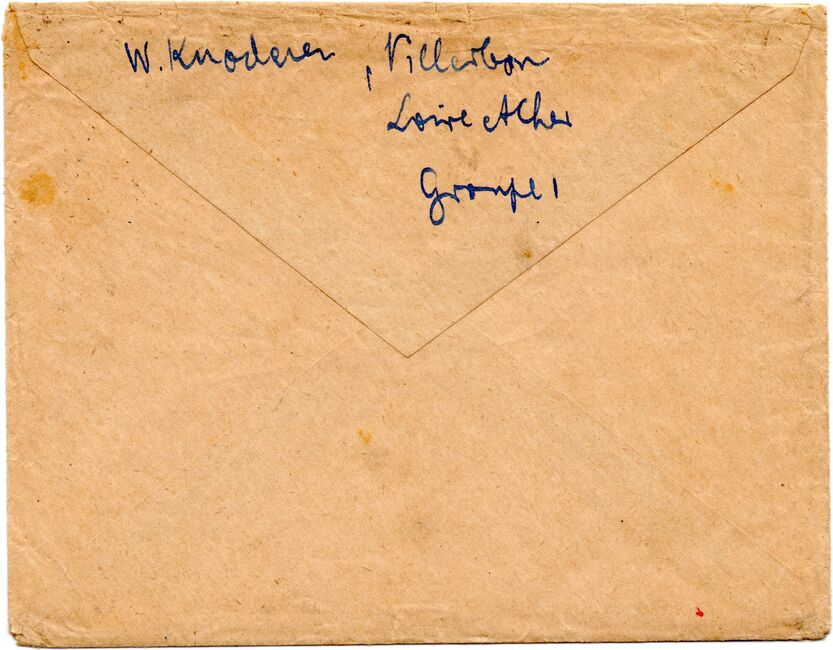 W. Knoderer, Villerbon
Loire et Cher
Groupe 1